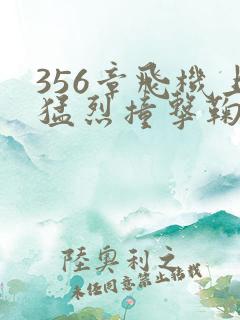 356章飛機上
猛烈撞擊鞠
陸奧利之
未任同意禁止轉載